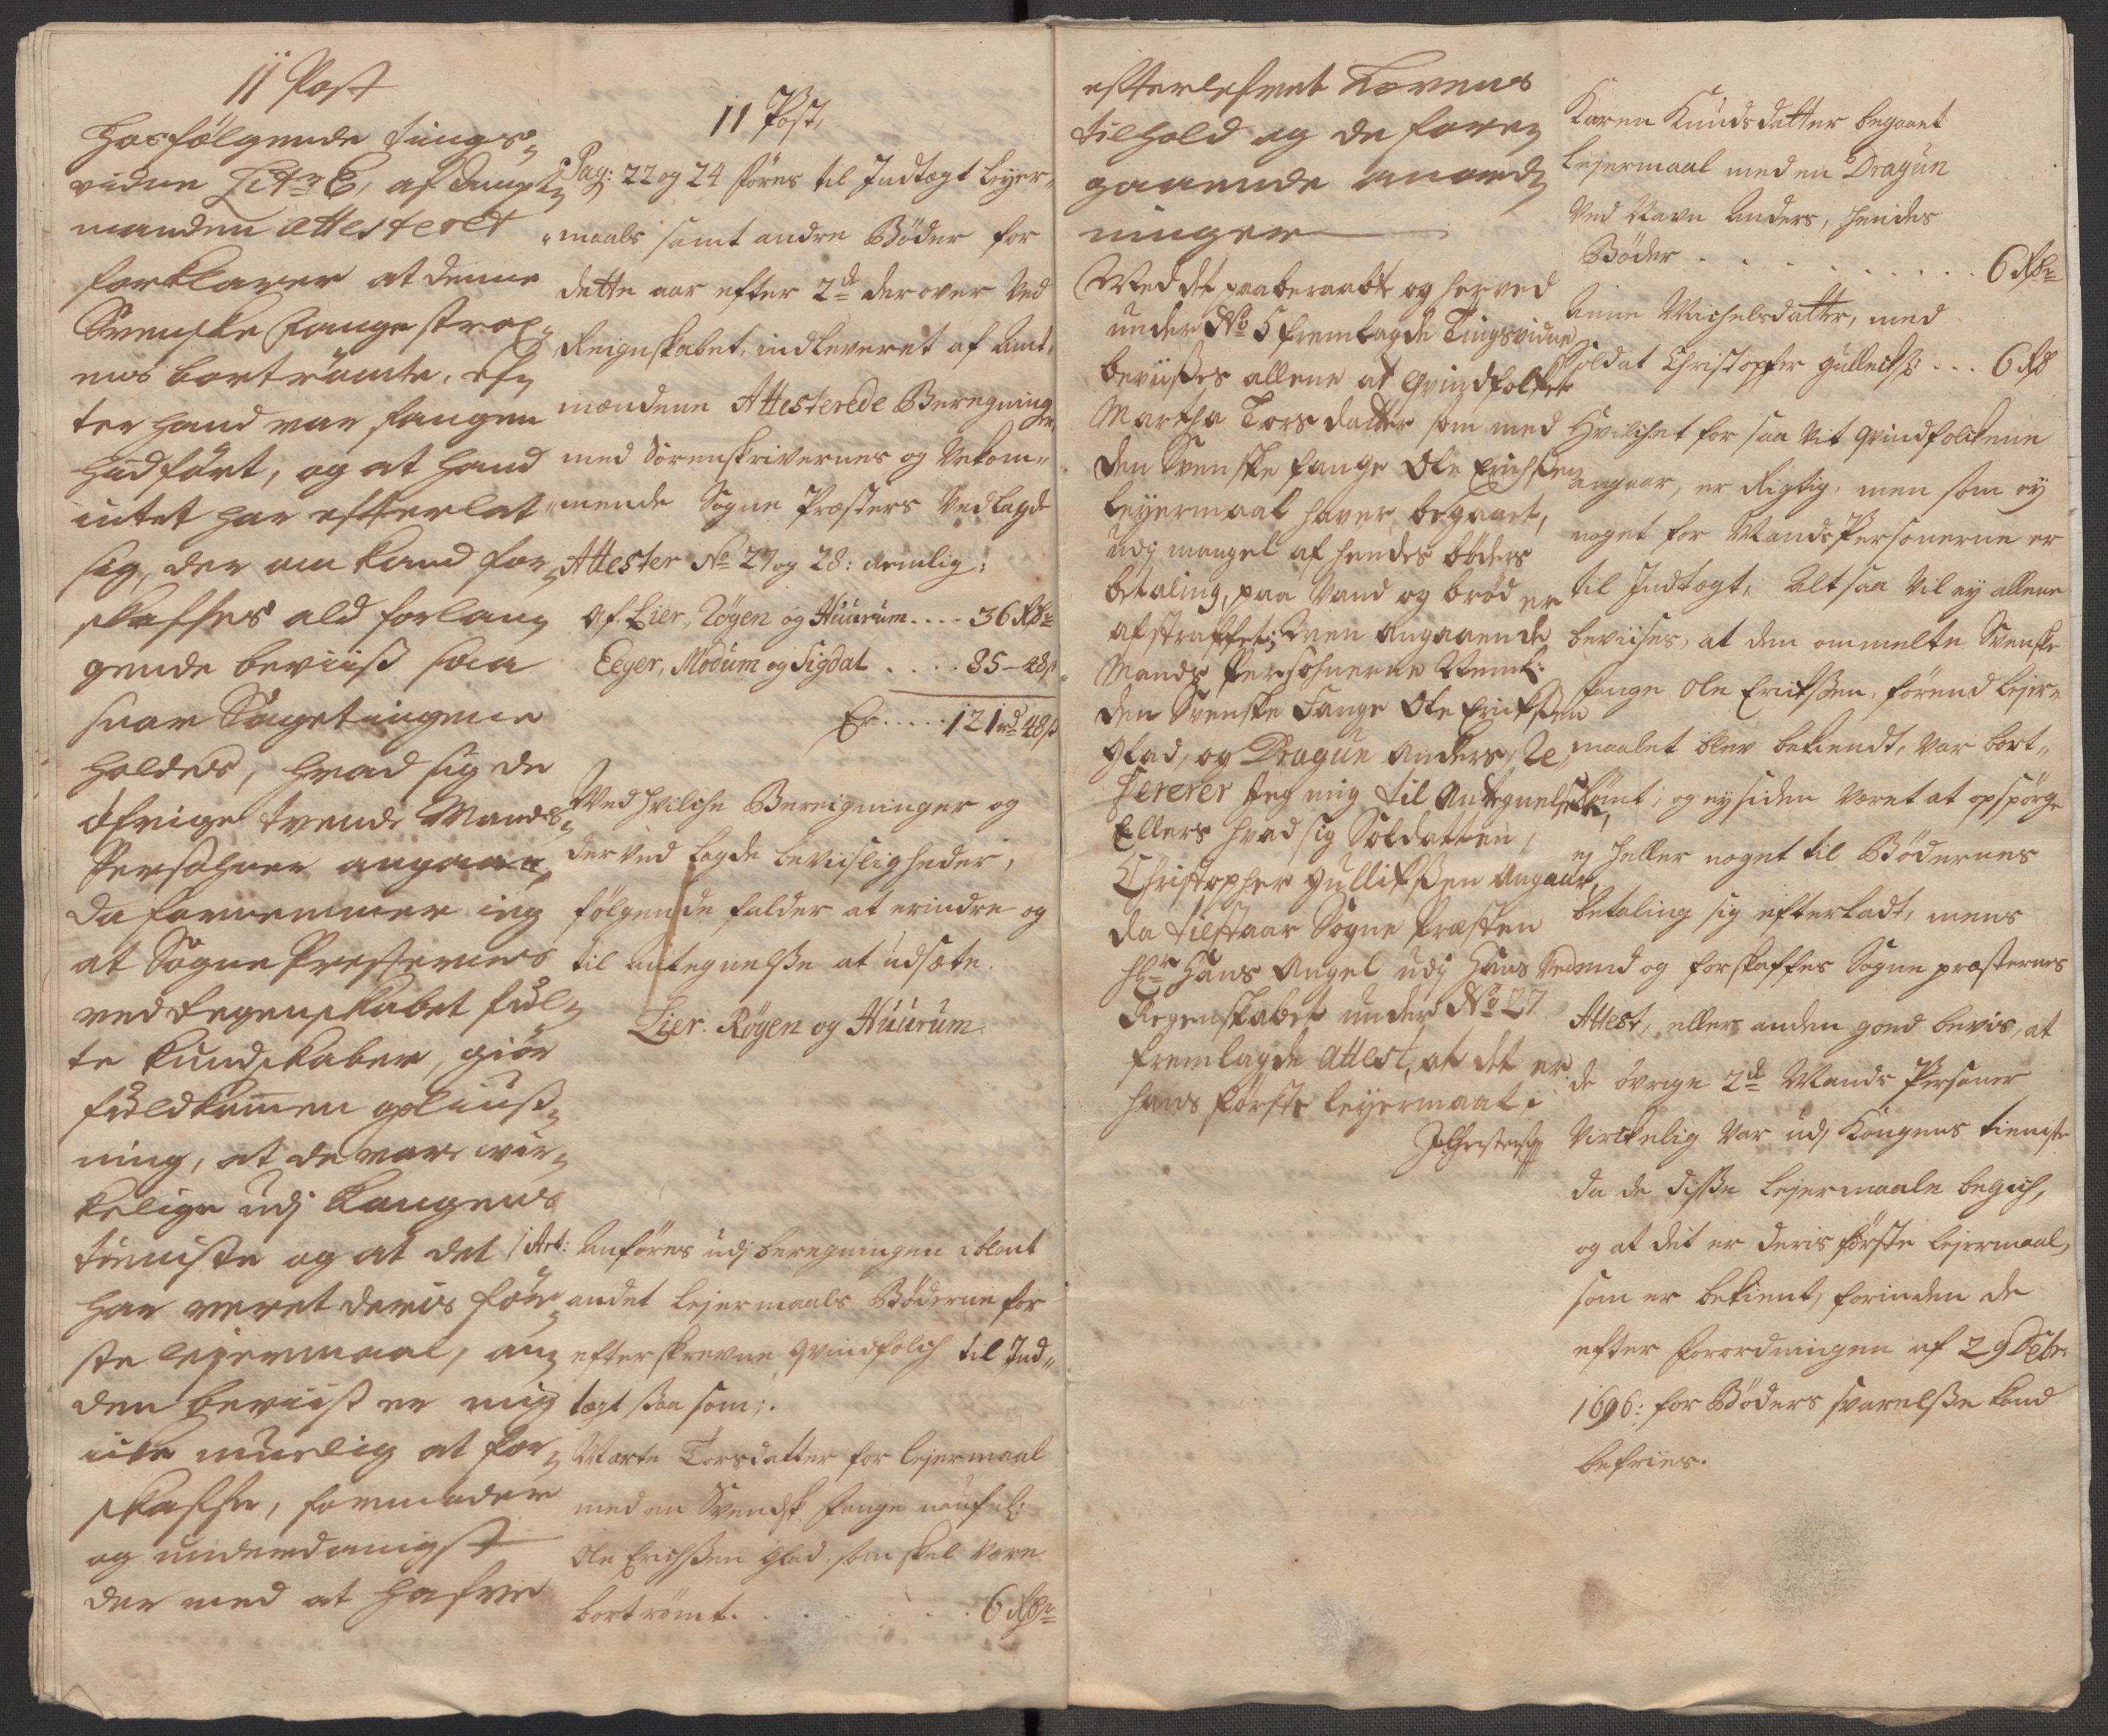 11 Post
Hosfölgende tings„
vidne Litr E, af Ampt„
manden attesteret
forklarer at denne
Svenske fange strax„
ens bortrömte, ef„
ter hand var fangen
hidfört, og at hand
intet har efterlat
sig, der om kand for„
skaffes ald forlan„
gende beviiß saa
snar Sagetingene
holdes, hvad sig de
öfrige tvende Mands„
Persohner angaar,
da fornemmer ieg
at Sogne Presternes
ved Regenskabet ful„
te kundskaber, giör
fuldkommen
ning, at de var vir„
kelige udj Kongens
tieniste og at det
har veret deris för„
ste leyermaal, an„
den beviiß er mig
icke muelig at for„
skaffe, formoder
og underdanigst
der med at hafve
11 Post,
Pag: 22 og 24 föres til Indtægt Leyer„
„maals samt andre Böder for
dette aar efter 2de derover Ved
Reignskabet, indleveret af Amt„
mændene Attesterede Beregninger,
med Sorenskrivernes og Vekom„
„mende Sogne Præsters Vedlagde
Attester No 27 og 28: nemlig:
Af. Lier, Röyen og Huurum.... 36 Rdr
Eeger, Modum og Sigdal .... 85 – 48 s
Er..... 121 rd 48 s
Ved hvilche Bereigninger og
derved lagde beviisligheder,
fölgende falder at erindre og
til Antegnelße at udsætte.
Lier. Röyen og Huurum
1 Art: Anföres udj beregningen iblant
andet Lejermaals Böderne for
efterskrevne qvindfolch til Ind„
tægt saa som:.
Marte Torsdatter for lejermaal
med en Svendsk fange naufnl:
Ole Erichßen Glad, som skal være
bortrömt. . . . . . . 6 Rdr
efterlefvet Lovens
tilhold og de fore„
gaaende anord„
ninger
Med det paaberaabte og herved
under No 5 fremlagde Tingsvidne
beviißes allene at qvindfolket
Martha Torsdatter som med
den Svenske fange Ole Erichßen
Leyermaal haver begaaet,
udj mangel af hendes böders
betaling, paa Vand og bröd er
afstraffet; Men Angaaende
Mands Persohnerne Neml:
den Svenske Fange Ole Erichßen
Glad, og Dragun Anders, Re„
fererer Jeg mig til Antegnelsen,
Ellers hvad sig Soldatten,
Christopher Gullichßen Angaar,
da tilstaar Sogne Præsten
Hr Hans Angel udj hans Ved
Regenskabet under No 27
fremlagde attest, at det er
hans förste leyermaal;
Karen Knudsdatter begaaet
Lejermaal med en Dragun
ved Navn Anders, hendes
Böder . . . . . . . . . . 6 Rdr
Anne Michelsdatter, med
Soldat Christopher Gullichß... 6 Rd
Hvilchet for saa vit qvindfolckene
angaar, er Rigtig, men som ey
noget for MandsPersonerne er
til Indtægt, Altsaa vil ey allene
beviises, at den ommelte Svenske
fange Ole Erichßen, förend Lejer„
maalet blev bekiendt, var bort„
römt; og ey siden været at opspörge
ej heller noget til Bödernes
betaling sig efterladt, mens
end og forskaffes Sogne præsternes
Attest, eller anden goed bevis, at
de övrige 2de Mands Personer
Virckelig var udj Kongens tienste
da de disße Lejermaale begich,
og at det er deris förste Lejermaal,
som er bekient, forinden de
efter Forordningen af 29 Octbr.
1696: for Böders svarelße kand
befries.